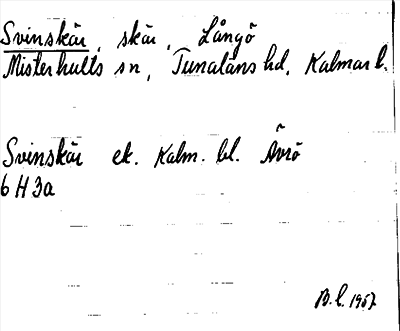 Svinskär, skär, Långö
Misterhults sn, Tunaläns hd, Kalmar l.
Svinskär ek. Kalm. bl. Ävrö
6 H 3a
B.L. 1957